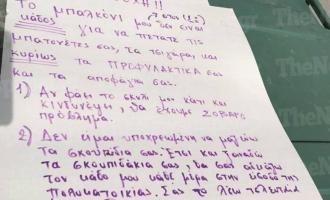 ΧΗ!!
Το μπαλκόνι μου δεν είναι
κάδος για να πετάτε τις
μπατονέτες σας, τα τσιγάρα, και
κυρίως τα ΠΡΟΦΥΛΑΚΤΙΚΑ σας
και τα αποφάγια σας.
1) Αν φάει το σκυλί μου κάτι και
κινδυνέψει, θα έχουμε ΣΟΒΑΡΟ
πρόβλημα.
2) Δεν είμαι υποχρεωμένη να μαζεύω
τα σκουπίδια σας. Έτσι και ξαναδώ
τα σκουπιδάκια σας, θα σας αδειάζω
τον κάδο μου κάθε μέρα στην είσοδο της
πολυκατοικίας. Σας το λέω τελευταία